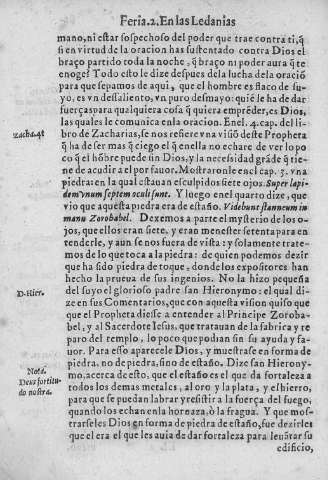 Feria.2. En las Ledanias
mano, ni estar sospechoso del poder que trae contra ti, q̃
si en virtud de la oracion has sustentado contra Dios el
braço partido toda la noche, q̃ braço ni poder aura q̃ te
enoge? Todo esto le dize despues de la lucha de la oració
para que sepamos de aqui, que el hombre es flaco de su-
yo, es vn dessaliento, vn puro desmayo: quié le ha de dar
fuerças para qualquiera cosa q̃ quiera empréder, es Dios,
las quales le comunica en la oracion. En el .4. cap. del li-
bro de Zacharias, se nos refiere vna visió deste Propheta
Zacha.4t
q̃ ha de ser mas q̃ ciego el q̃ en ella no echare de ver lo po
co q̃ el hõbre puede sin Dios, y la necesidad gráde q̃ tie-
ne de acudir a el por fauor. Mostraronle en el cap. 3. vna
piedra en la qual estauan esculpidos siete ojos. Super lapi-
dem vnum septem oculi sunt. Y luego en el quarto dize, que
vio que aquesta piedra era de estaño. Videbunt stanneum in
manu Zorobabel. Dexemos a parte el mysterio de los o-
jos, que ellos eran siete, y eran menester setenta para en
tenderle, y aun se nos fuera de vista: y solamente trate-
mos de lo que toca a la piedra: de quien podemos dezir
que ha sido piedra de toque, donde los expositores han
hecho la prueua de sus ingenios. No la hizo pequeña
D. Hier.
del suyo el glorioso padre san Hieronymo: el qual di-
ze en sus Comentarios, que con aquesta vision quiso que
que el Propheta diesse a entender al Principe Zoroba-
bel, y al Sacerdote Iesus, que tratauan de la fabrica y re
paro del templo, lo poco que podian sin su ayuda y fa-
uor. Para esso aparecele Dios, y muestrase en forma de
piedra, no de piedra, sino de estaño. Dize san Hierony-
Nota.
Deus fortitu-
do nostra.
mo, acerca de esto, que el estaño es el que da fortaleza a
todos los demas metales, al oro y la plata, y el hierro,
para que se puedan labrar y resistir a la fuerça del fuego,
quando los echan en la hornaza, ò la fragua. Y que mos-
trarseles Dios en forma de piedra de estaño, fue dezirles
que el era el que les auia de dar fortaleza para leuãtar su
edificio,